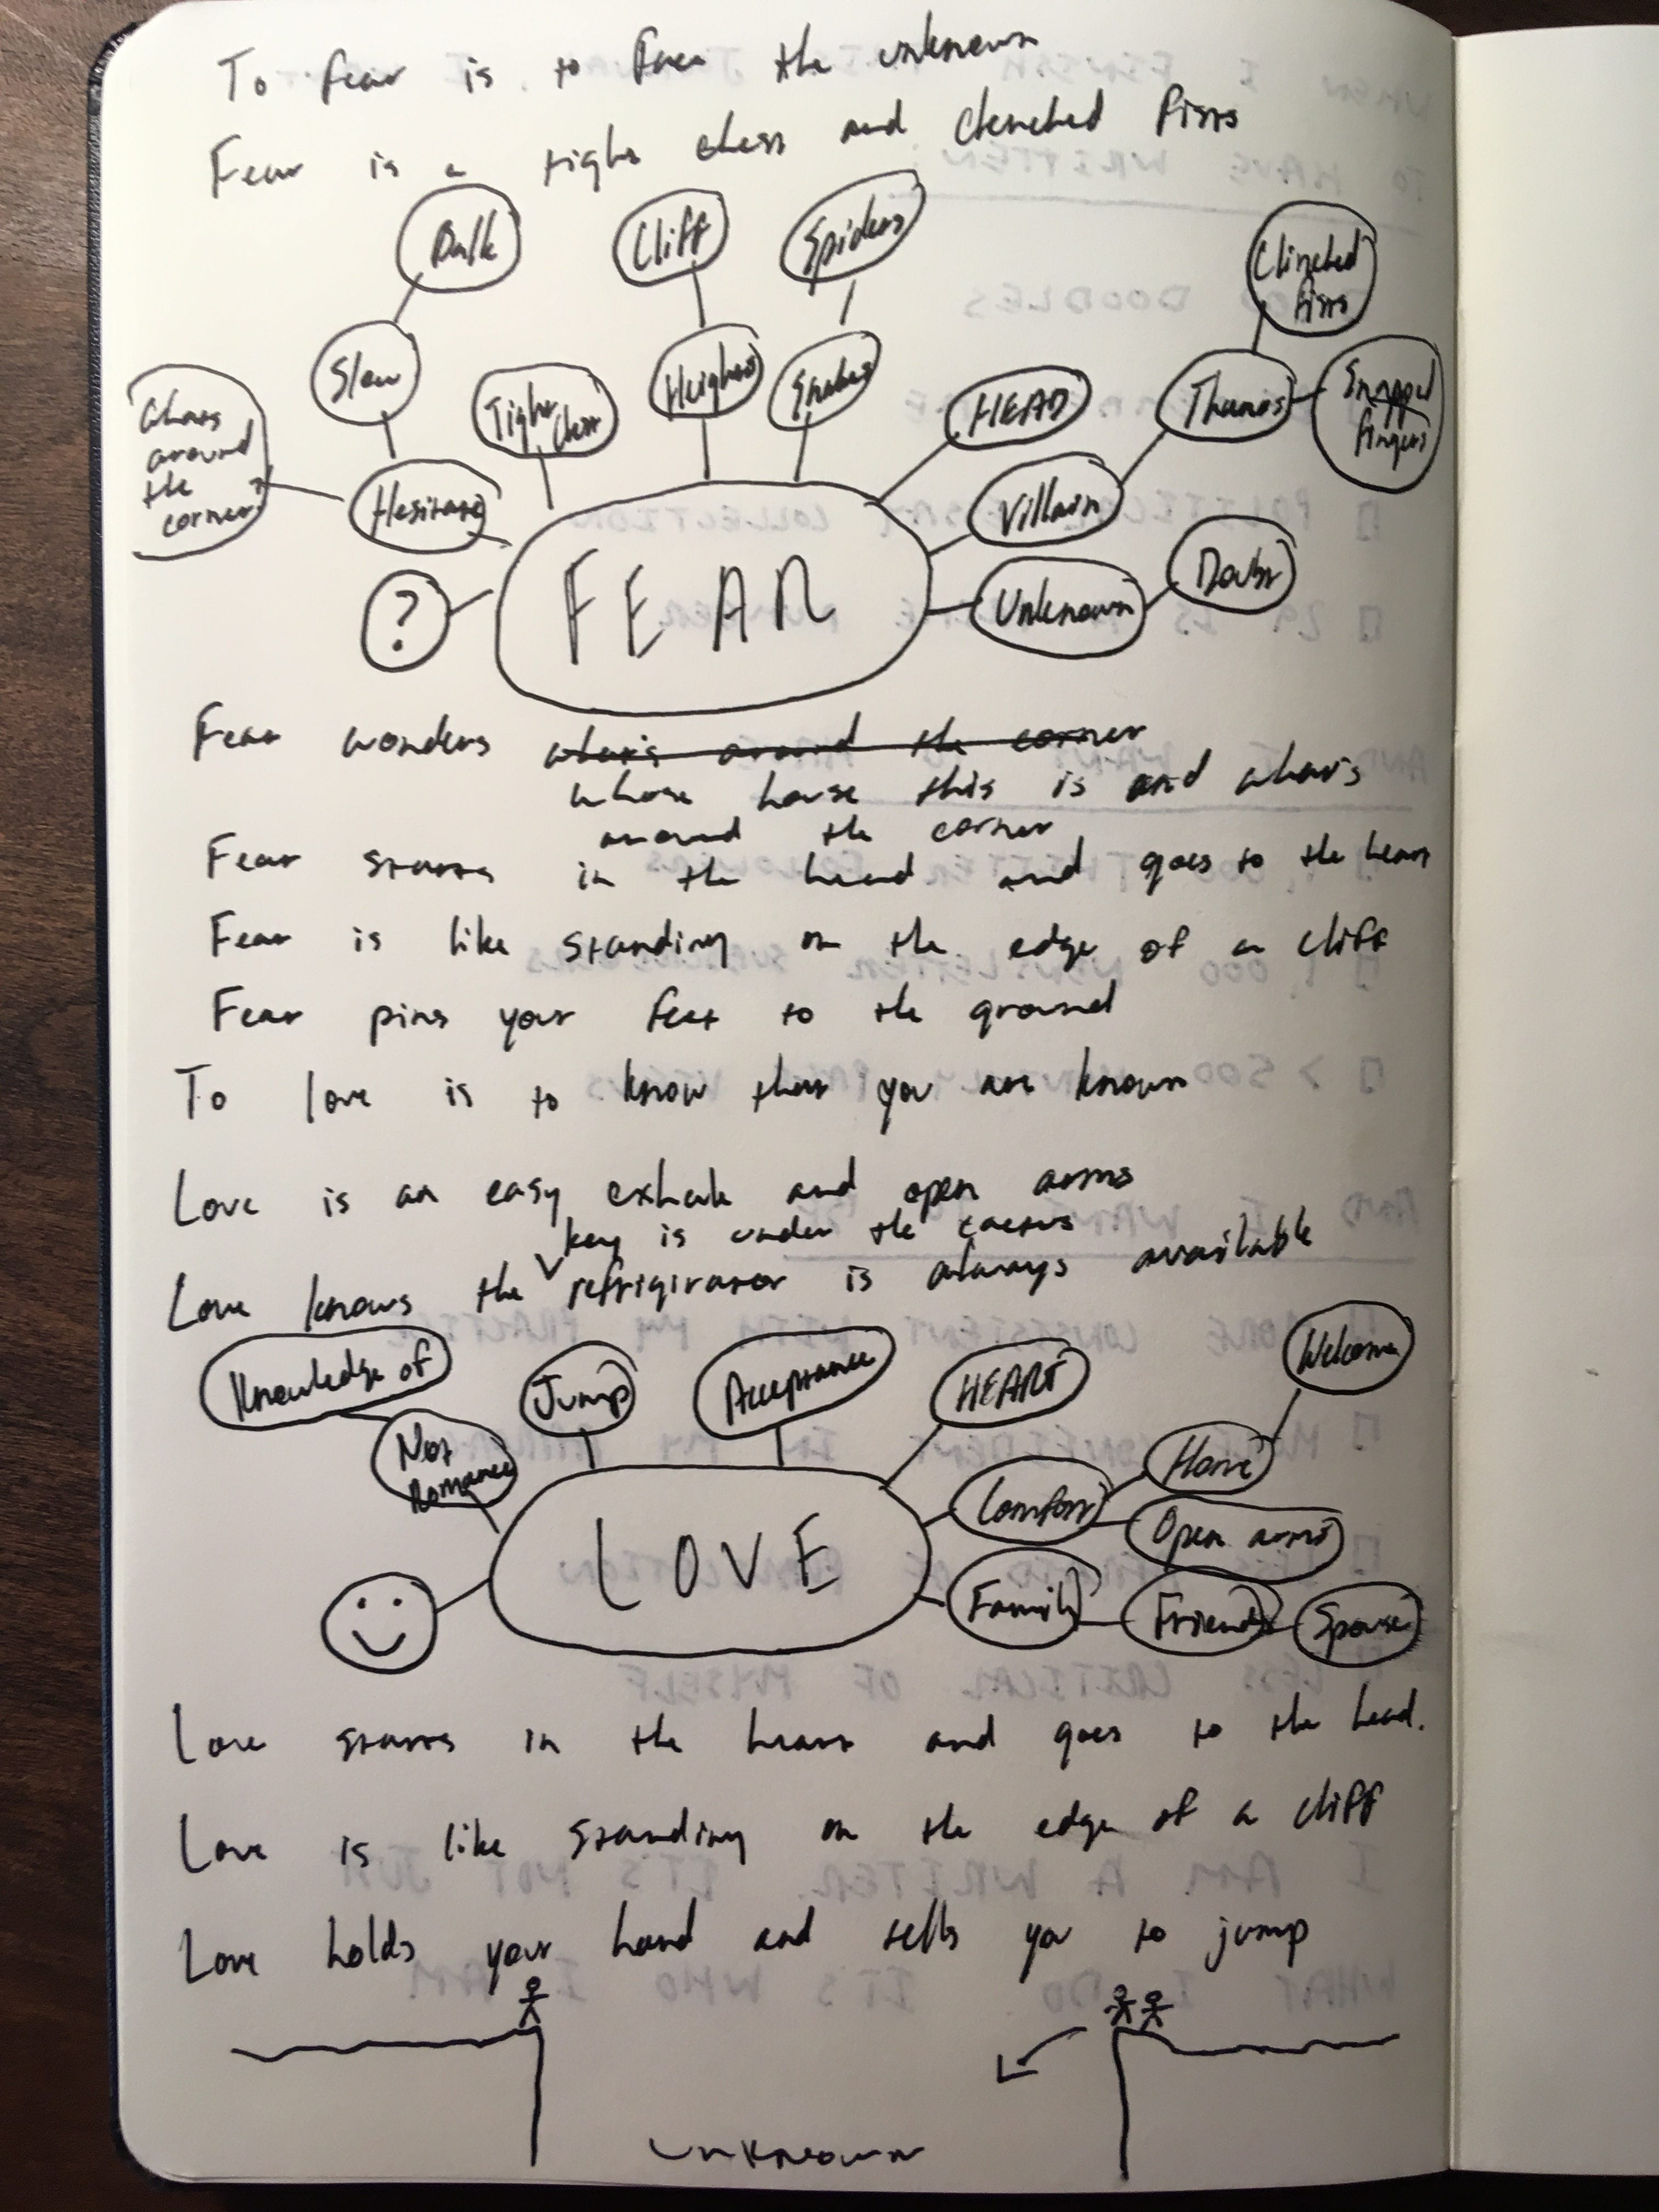 To fear is to face the unknown
Fear is a tight chest and clenched fists
Dark
Cliff
Spiders
Clinched
fists
Slow
Tight
Chest
Heights
Snakes
HEAD
Thanos
Snapped
fingers
Whats
around
the
corner?
Hesitate
Villain
?
FEAR
Unknown
Doubt
Fear wonders what's around the corner
whose house this is and what's
around the corner
Fear starts in the head and goes to the heart
Fear is like standing on the edge of a cliff
Fear pins your feet to the ground
To love is to know that you are known
Love is an easy exhale and open arms
key is under the cactus
Love knows the refrigirator is always available
Knowledge of
Jump
Acceptance
HEART
Welcome
Not
Romance
Home
Comfort
Open arms
LOVE
Family
Friends
Spouse
Love starts in the heart and goes to the head.
Love is like standing on the edge of a cliff
Love holds your hand and tells you to jump
unknown